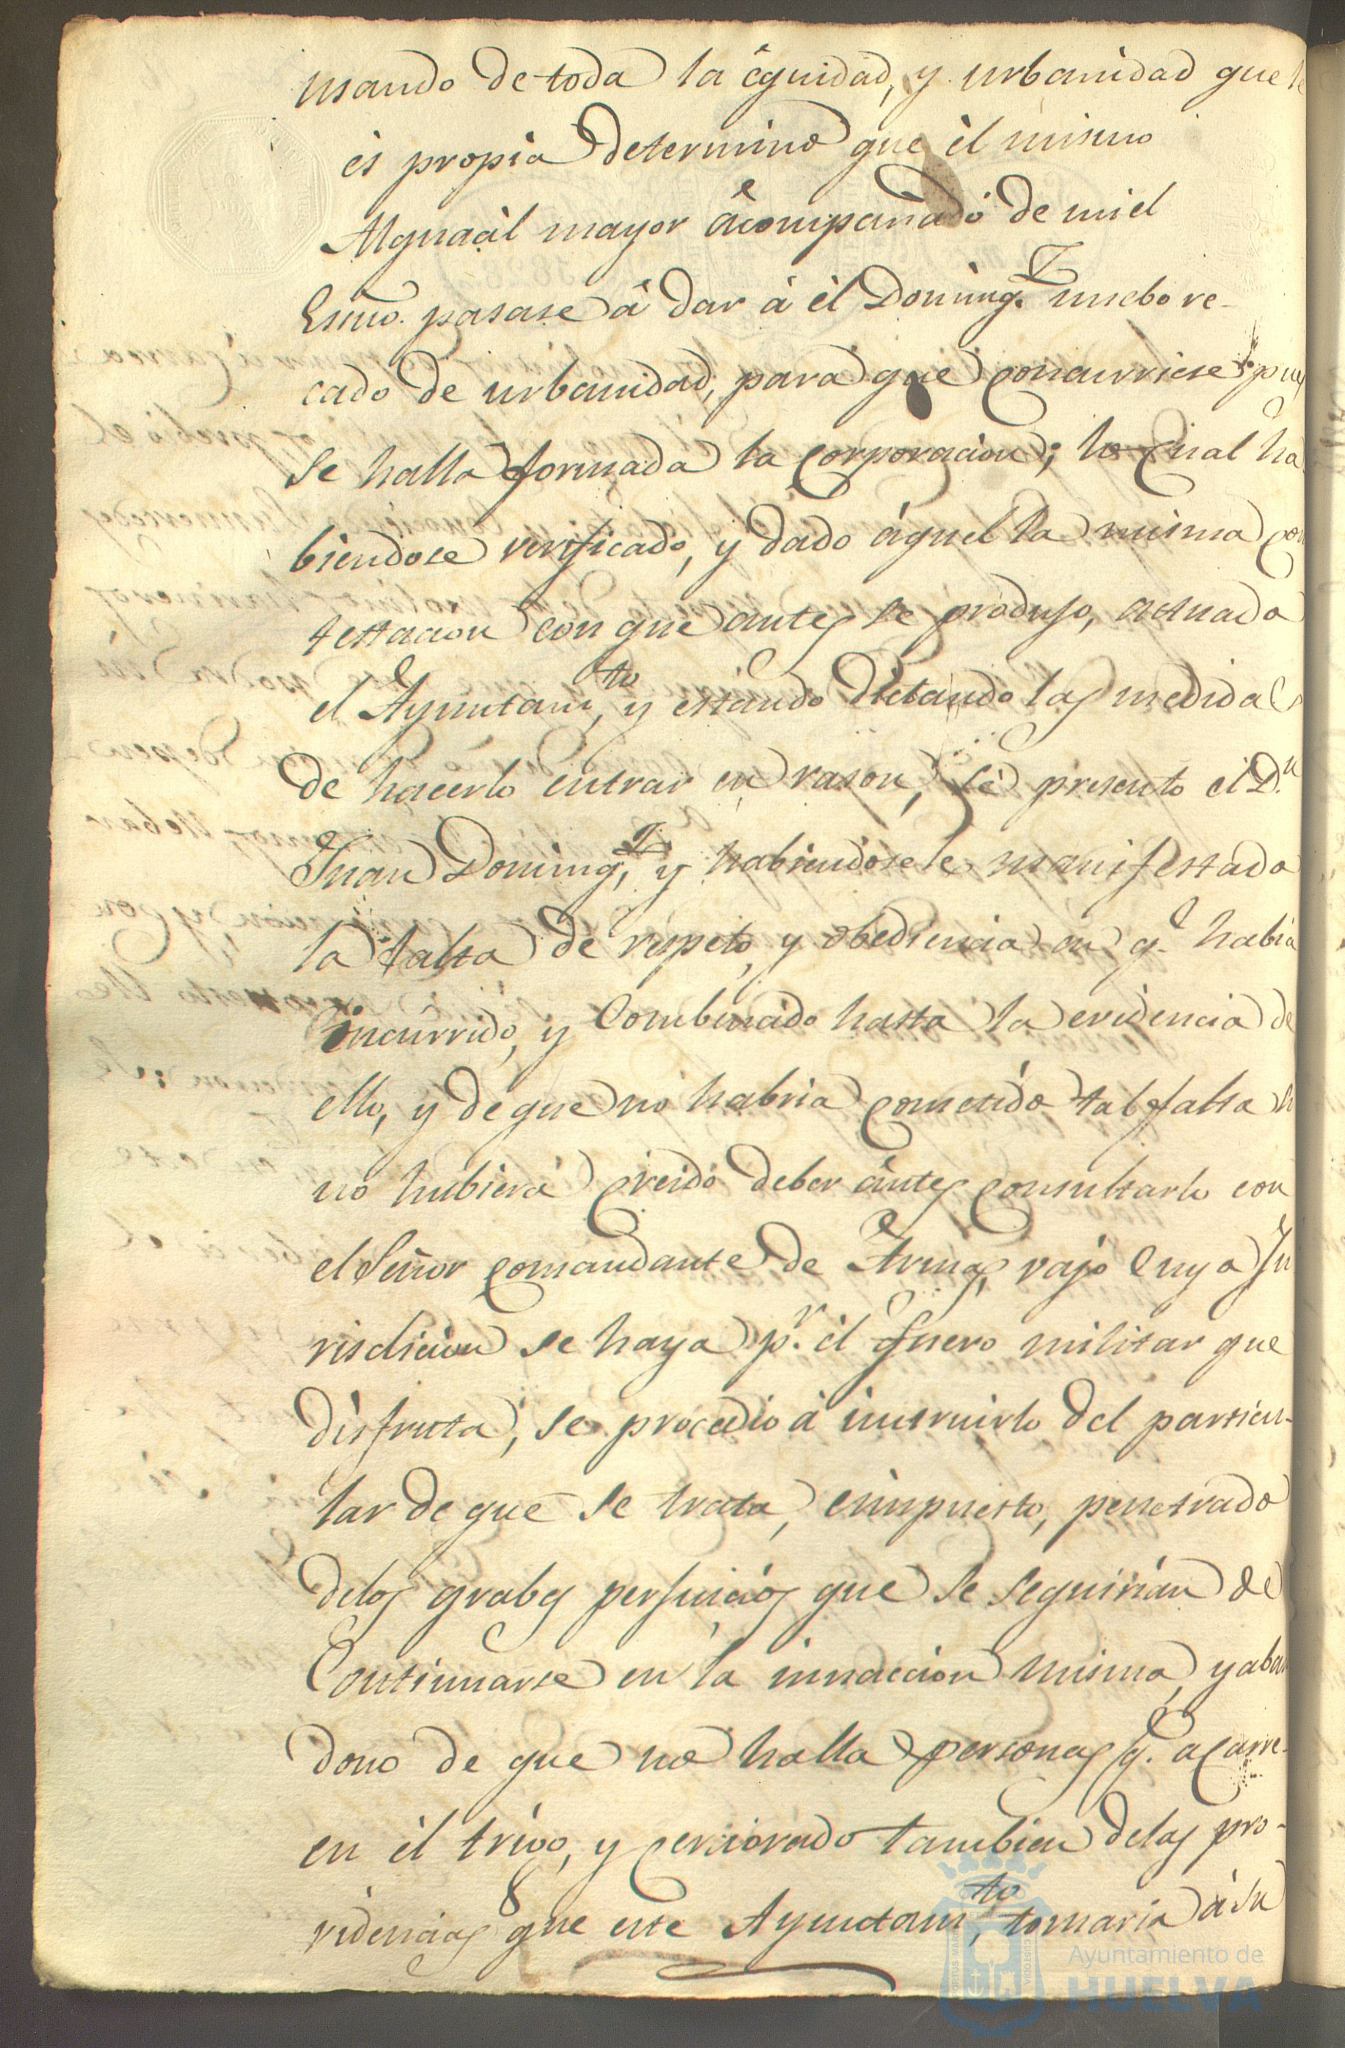 usando de toda la êquidad, y urbanidad que le
és propia determinò que èl mismo
Alguacil mayor âcompañado de mi el
Essno. pasase â dar á èl Doming.z nuebo re-
cado de urbanidad, para que concurriese pues
se halla formada la Corporacion; lo qual ha
biendose verificado, y dado áquel la misma con
testacion con que antes se produjo, actuado
el Ayuntam.to, y estando dictando las medidas
de hacerlo entrar en rason, sè presento el D.n
Juan Doming.z, y habiendosele manifestado
la falta de respeto, y obediencia en q.e habia
incurrido, y Combencido hasta la evidencia de
ello, y de que no habria cometido tal falta si
no hubiera creido deber ântes consultarlo con
el Señor comandante de Armas, vajo cuya Ju
risdicion se haya p.r èl fuero militar que
disfruta, se procedio á instruirlo del particu-
lar de que se trata, èimpuesto, penetrado
delos grabes perjuicios que se seguirian de
Continuarse en la innaccion misma, y aban
dono de que no halla personas q.e acarre-
en èl trigo, y cerciorado tambien delas pro-
videncias que este Ayuntam.to, tomaria á su
Ayuntamiento de
HUELVA